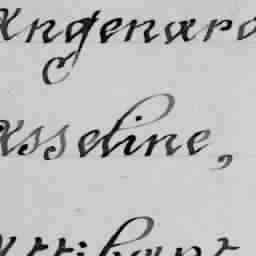 Angenard
Asseline,